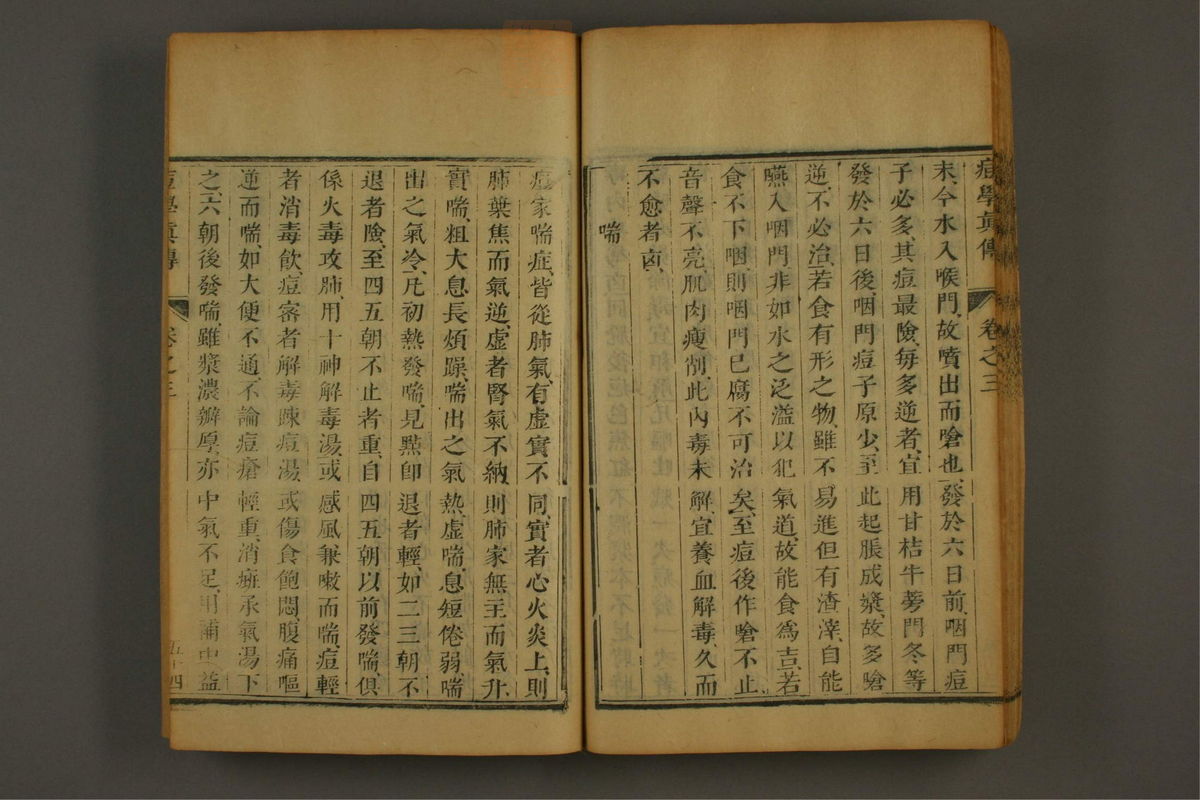 痘學真傳 卷之三
末、今水入喉門、故噴出而嗆也、發於六日前、咽門痘
子必多、其痘最險、每多逆者、宜用甘桔牛蒡門冬等
發於六日後、咽門痘子原少、至此起脹成漿、故多嗆
逆、不必治、若食有形之物、雖不易進但有渣滓、自能
嚥入咽門、非如水之泛溢以犯氣道、故能食爲吉、若
食不下咽、則咽門已腐不可治矣、至痘後作嗆不止
音聲不亮、肌肉瘦削、此內毒未解、宜養血解毒、久而
不愈者凶、
喘
痘家喘症、皆從肺氣、有虛實不同、實者心火炎上、則
肺葉焦而氣逆、虛者腎氣不納、則肺家無主而氣升、
實喘、粗大息長煩躁、喘出之氣熱、虛喘、息短倦弱喘
出之氣冷、凡初熱發喘、見點卽退者輕、如二三朝不
退者險、至四五朝不止者重、自四五朝以前發喘、俱
係火毒攻肺、用十神解毒湯、或感風兼嗽而喘、痘輕
者消毒飲、痘密者解毒疎痘湯、或傷食飽悶、腹痛嘔
逆而喘、如大便不通、不論痘瘡輕重、消癍承氣湯下
之、六朝後發喘、雖漿濃瓣厚、亦中氣不足、用補中益
痘學真傳 卷之三 五十四